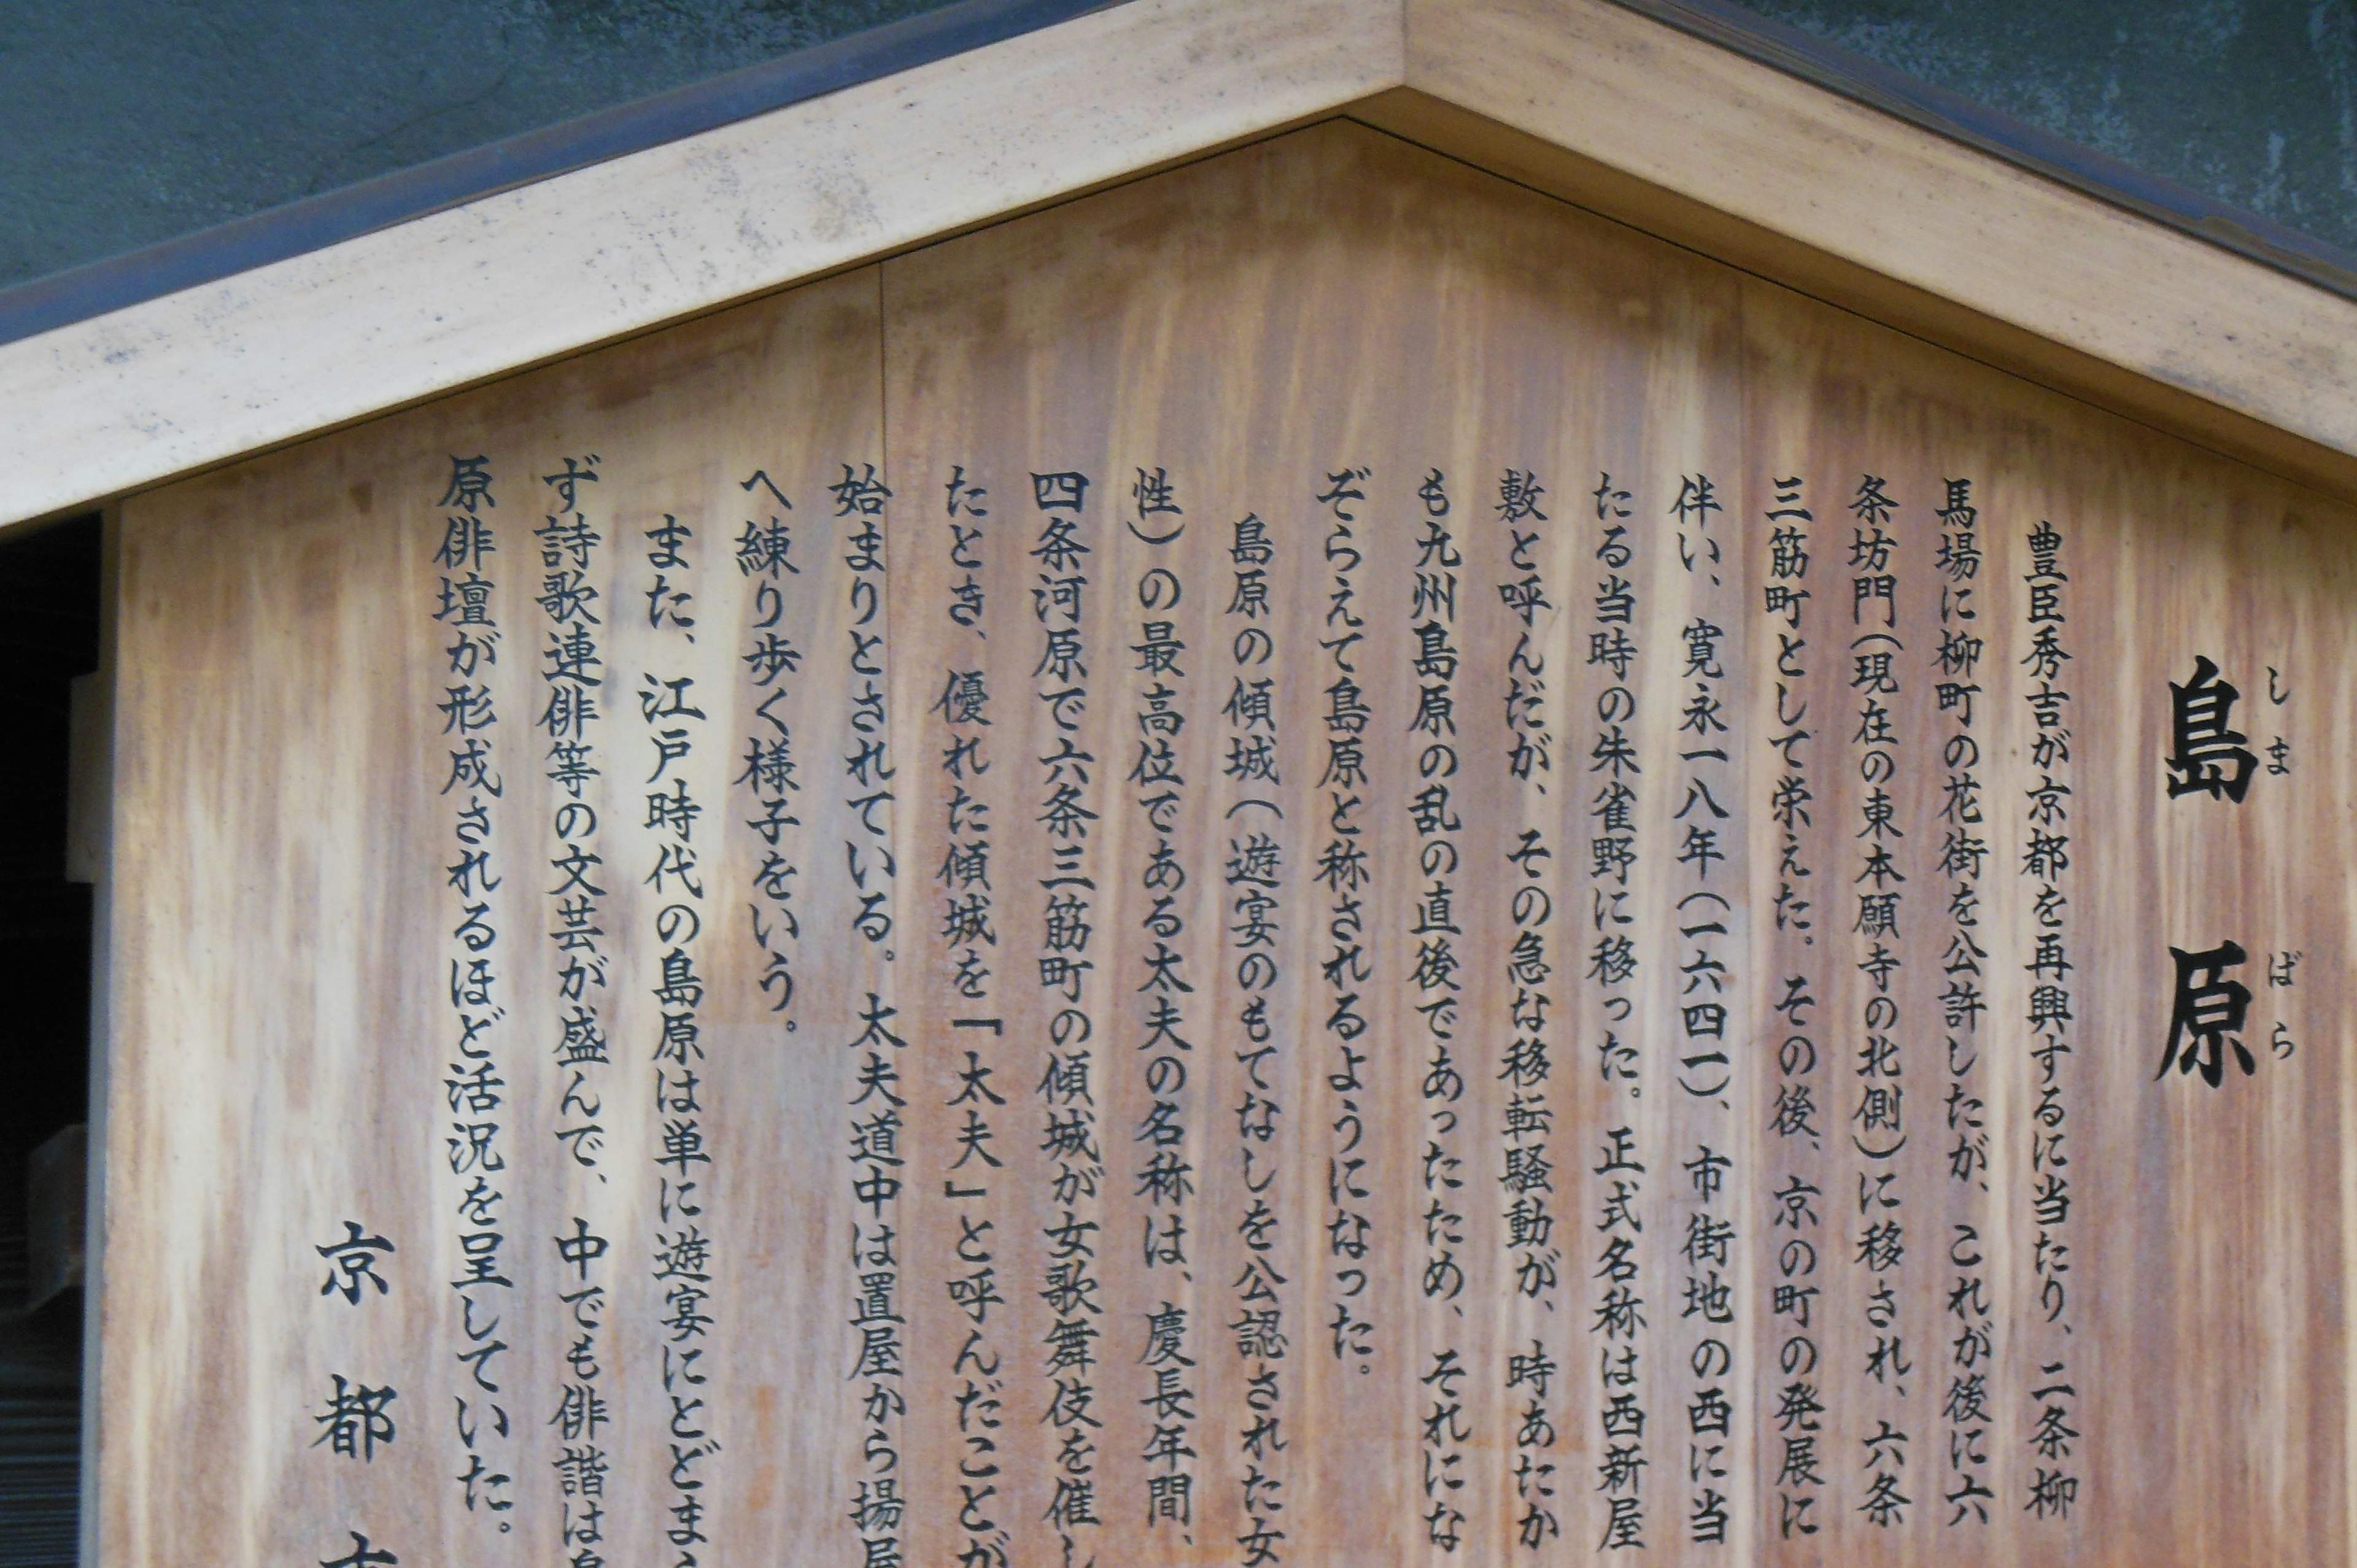 島原
しまばら
豊臣秀吉が京都を再興するに当たり、二条柳
馬場に柳町の花街を公許したが、これが後に六
条坊門(現在の東本願寺の北側)に移され、六条
三筋町として栄えた。その後、京の町の発展に
伴い、寛永一八年(一六四一)、市街地の西に当
たる当時の朱雀野に移った。正式名称は西新屋
敷と呼んだが、その急な移転騒動が、時あたか
も九州島原の乱の直後であったため、それにな
ぞらえて島原と称されるようになった。
島原の傾城(遊宴のもてなしを公認された女
性)の最高位である太夫の名称は、慶長年間、
四条河原で六条三筋町の傾城が女歌舞伎を催し
たとき、優れた傾城を「太夫」と呼んだことが
始まりとされている。太夫道中は置屋から揚屋
へ練り歩く様子をいう。
また、江戸時代の島原は単に遊宴にとどま
ず詩歌連俳等の文芸が盛んで、中でも俳諧は
原俳壇が形成されるほど活況を呈していた。
京都